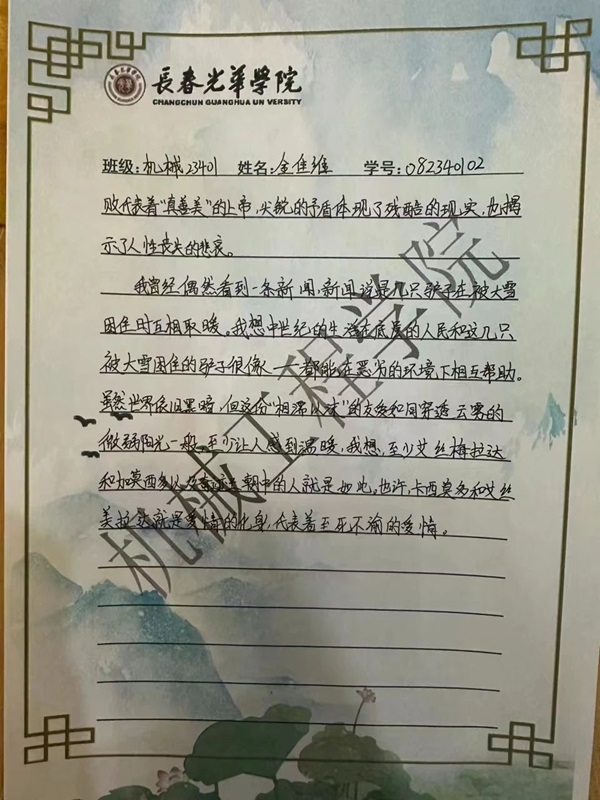 長春光华學院
CHANGCHUN GUANGHUA UN VERSITY
班级:机械23401 姓名:金佳维 学号:082340102
败代表着“真善美”的上帝,尖锐的矛盾体现了残酷的现实,也揭
示了人性丧失的悲哀。
我曾经偶然看到一条新闻,新闻说是几只驴子在被大雪
困住时互相取暖。我想中世纪的生活在底层的人民和这几只
被大雪困住的驴子很像——都能在恶劣的环境下相互帮助。
虽然世界依旧黑暗,但这份“相濡以沫”的友爱如同穿透云雾的
微弱阳光一般,至少让人感到温暖,我想,至少艾丝梅拉达
和加莫西多以及 朝中的人就是如此。也许,卡西莫多和艾丝
美拉达就是爱情的化身,代表着至死不渝的爱情。
机械工程学院